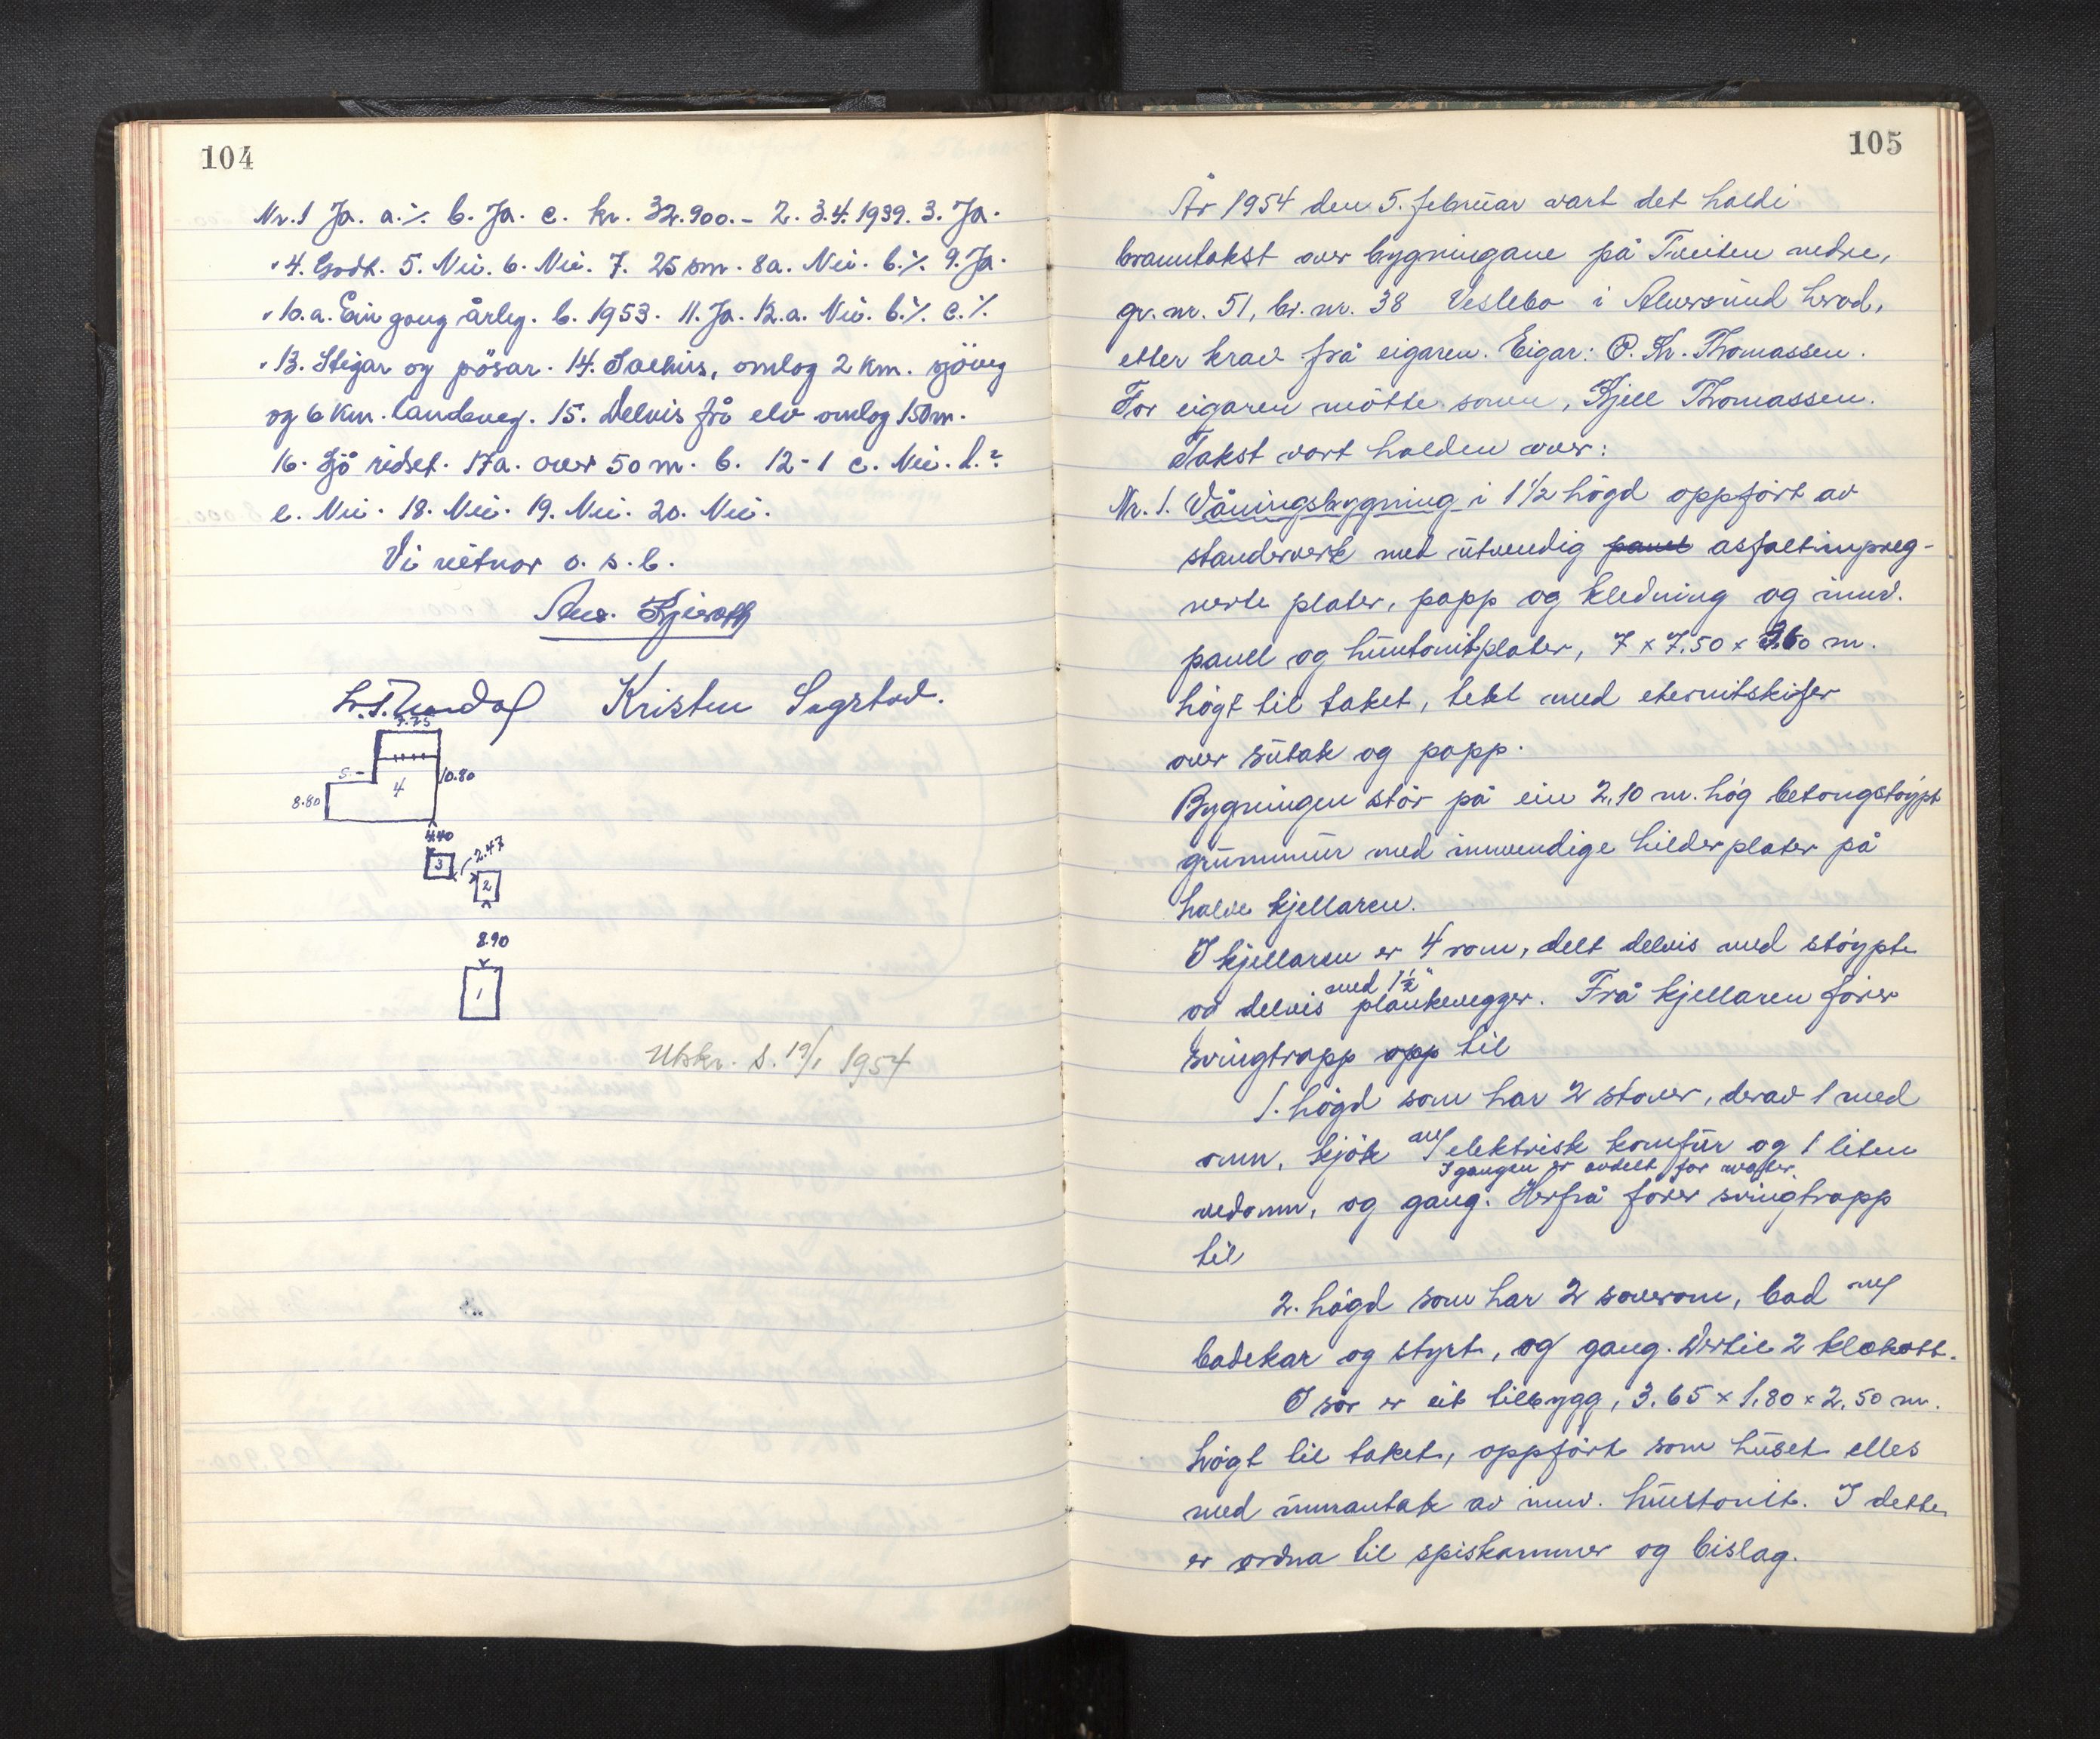 104
Nr. 1 Ja. a. ⁒ b. Ja. c. kr. 32.900.- 2. 3.4.1939. 3. Ja.
" 4. Godt. 5. Nei. 6. Nei. 7. 25 sm. 8a. Nei. b. ⁒ 9. Ja.
" 10. a. Ein gong årleg. b. 1953. 11. Ja. 12. a. Nei. b. ⁒ c. ⁒
" 13. Stigar og pösar. 14. Saehus, omlag 2 km. sjöveg
og 6 km. landeveg. 15. Delvis frå elv omlag 150 m.
16. Sjö ridset. 17a. over 50 m. b. 12-1 c. Nei. d. ?
e. Nei. 18. Nei. 19. Nei. 20. Nei.
Vi vitnar o. s. b.
Kristen Sagstad.
7.75
5 -
4
10.80
8.80
4.40
3
2.47
2
8.90
1
Utskr. s. 19/1 1954
105
År 1954 den 5. februar vart det haldi
branntakst over bygningane på Tveiten nedre,
gr. nr. 51, br. nr. 38 Veslebo i Alversund herad,
etter krav frå eigaren. Eigar: O. Kr. Thomassen.
For eigaren mötte sonen, Kjell Thomassen.
Takst vart halden over:
Nr. 1. Våningsbygning i 1 1/2 högd oppfört av
standerverk med utvendig panel asfaltimpreg-
nerte plater, papp og kledning og innv.
panel og huntonitplater, 7 x 7.50 x 3.60 m.
högt til taket, tekt med eternitskifer
over sutak og papp.
Bygningen står på ein 2,10 m. hög betongstöypt
grunnmur med innvendige hilderplater på
halve kjellaren.
I kjellaren er 4 rom, delt delvis med stöypte
og delvis med 1 1/2" plankevegger. Frå kjellaren förer
svingtrapp opp til
1. högd som har 2 stover, derav 1 med
omn, kjök med elektrisk komfur og 1 liten
I gangen er avdelt for
vedomn, og gang. Herfrå förer svingtrapp
til
2. högd som har 2 soverom, bad med
badekar og styrt, og gang. Dertil 2 klekott.
I sör er eit tilbygg, 3.65 x 1.80 x 2.50 m.
högt til taket, oppfört som huset elles
med innantak av innv. huntonit. I dette
er ordna til spiskammer og bislag.